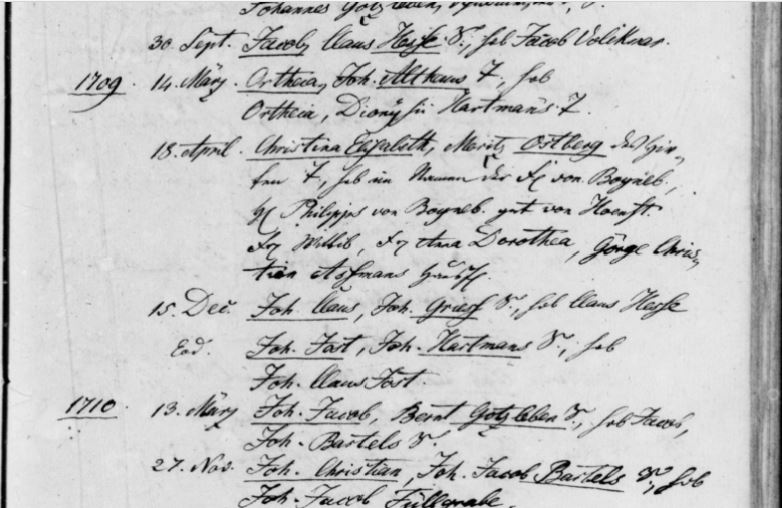 Johannes Götzleben,
30. Sept. Jacob, Claus Hesse S., hob Jacob Volkmar.
1709. 14. März. Ortheia, Joh. Althaus T., hob
Ortheia, Dionysii Hartmans T.
18. April. Christina Elisabeth, Moritz Ostberg des Hir-
ten T., hob im Namen der von Boyneb.,
H. Philipps von Boyneb. gnt von Hoenst.
Anna Dorothea, Görge Chris-
tian Assmans
15. Dec. Joh. Claus, Joh. Griesß S., hob Claus Hesse
Eod. Joh. Jost, Joh. Hartmans S., hob
Joh. Claus Jost.
1710. 13. März Joh. Jacob, Bernt Götzleben S., hob Jacob,
Joh. Bartels S.
27. Nov. Joh. Christian, Joh. Jacob Bartels S., hob
Joh. Jacob Füllgrabe.